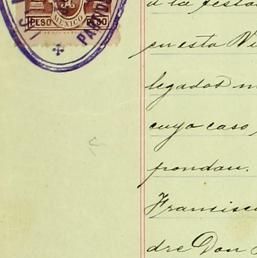 MEXICO
PESO
PESO
á la festa
en esta Vi
legados m
cuyo caso
pondan.
Francisco
dre Don